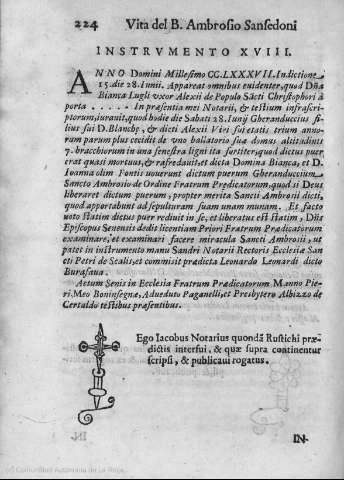 224 Vita del B. Ambrosio Sansedoni
INSTRVMENTO XVIII.
ANNO Domini Millesimo CC.LXXXVII. Indictione
15. die 28. Iunii. Appareat omnibus euidenter, quod Dña
Bianca Lugli vxor Alexii de Populo Sācti Christophori à
porta . . . . In presentia mei Notarii, & testium infrascri-
ptorum, iurauit, quod hodie die Sabati 28. Iunij Gheranduccius fi-
lius sui D. Blanchę, & dicti Alexii Viri sui ętatis trium anno-
rum parum plus cecidit de vno ballatorio suæ domus altitudinis
7. brachiorum in vna senestra ligni ita fortiter, quod dictus puer
erat quasi mortuus, & rafredauit, et dicta Domina Bianca, et D.
Ioanna olim Fontis vouerunt dictum puerum Gheranduccium
Sancto Ambrosio de Ordine Fratrum Prędicatorum, quod si Deus
liberaret dictum puerum, propter merita Sancti Ambrosii dicti,
quod apportabunt ad sepulturam suam vnam manum. Et facto
uoto statim dictus puer rediuit in se, et liberatus est statim, Dñs
Episcopus Senensis dedit licentiam Priori Fratrum Prædicatorum
examinare, et examinari facere miracula Sancti Ambrosii, ut
patet in instrumento manu Sandri Notarii Rectoris Ecclesiæ San-
cti Petri de Scalis, et commisit prædicta Leonardo Leonardi dicto
Burasaua.
Actum Senis in Ecclesia Fratrum Prædicatorum Manno Pie-
ri. Meo Boninsegnæ, Adueduto Paganelli, et Presbytero Albizzo de
Certaldo testibus præsentibus.
Ego Iacobus Notarius quondã Rustichi præ-
dictis interfui, & quæ supra continentur
scripsi, & publicaui rogatus.
IN-
(c) Comunidad Autónoma de La Rioja